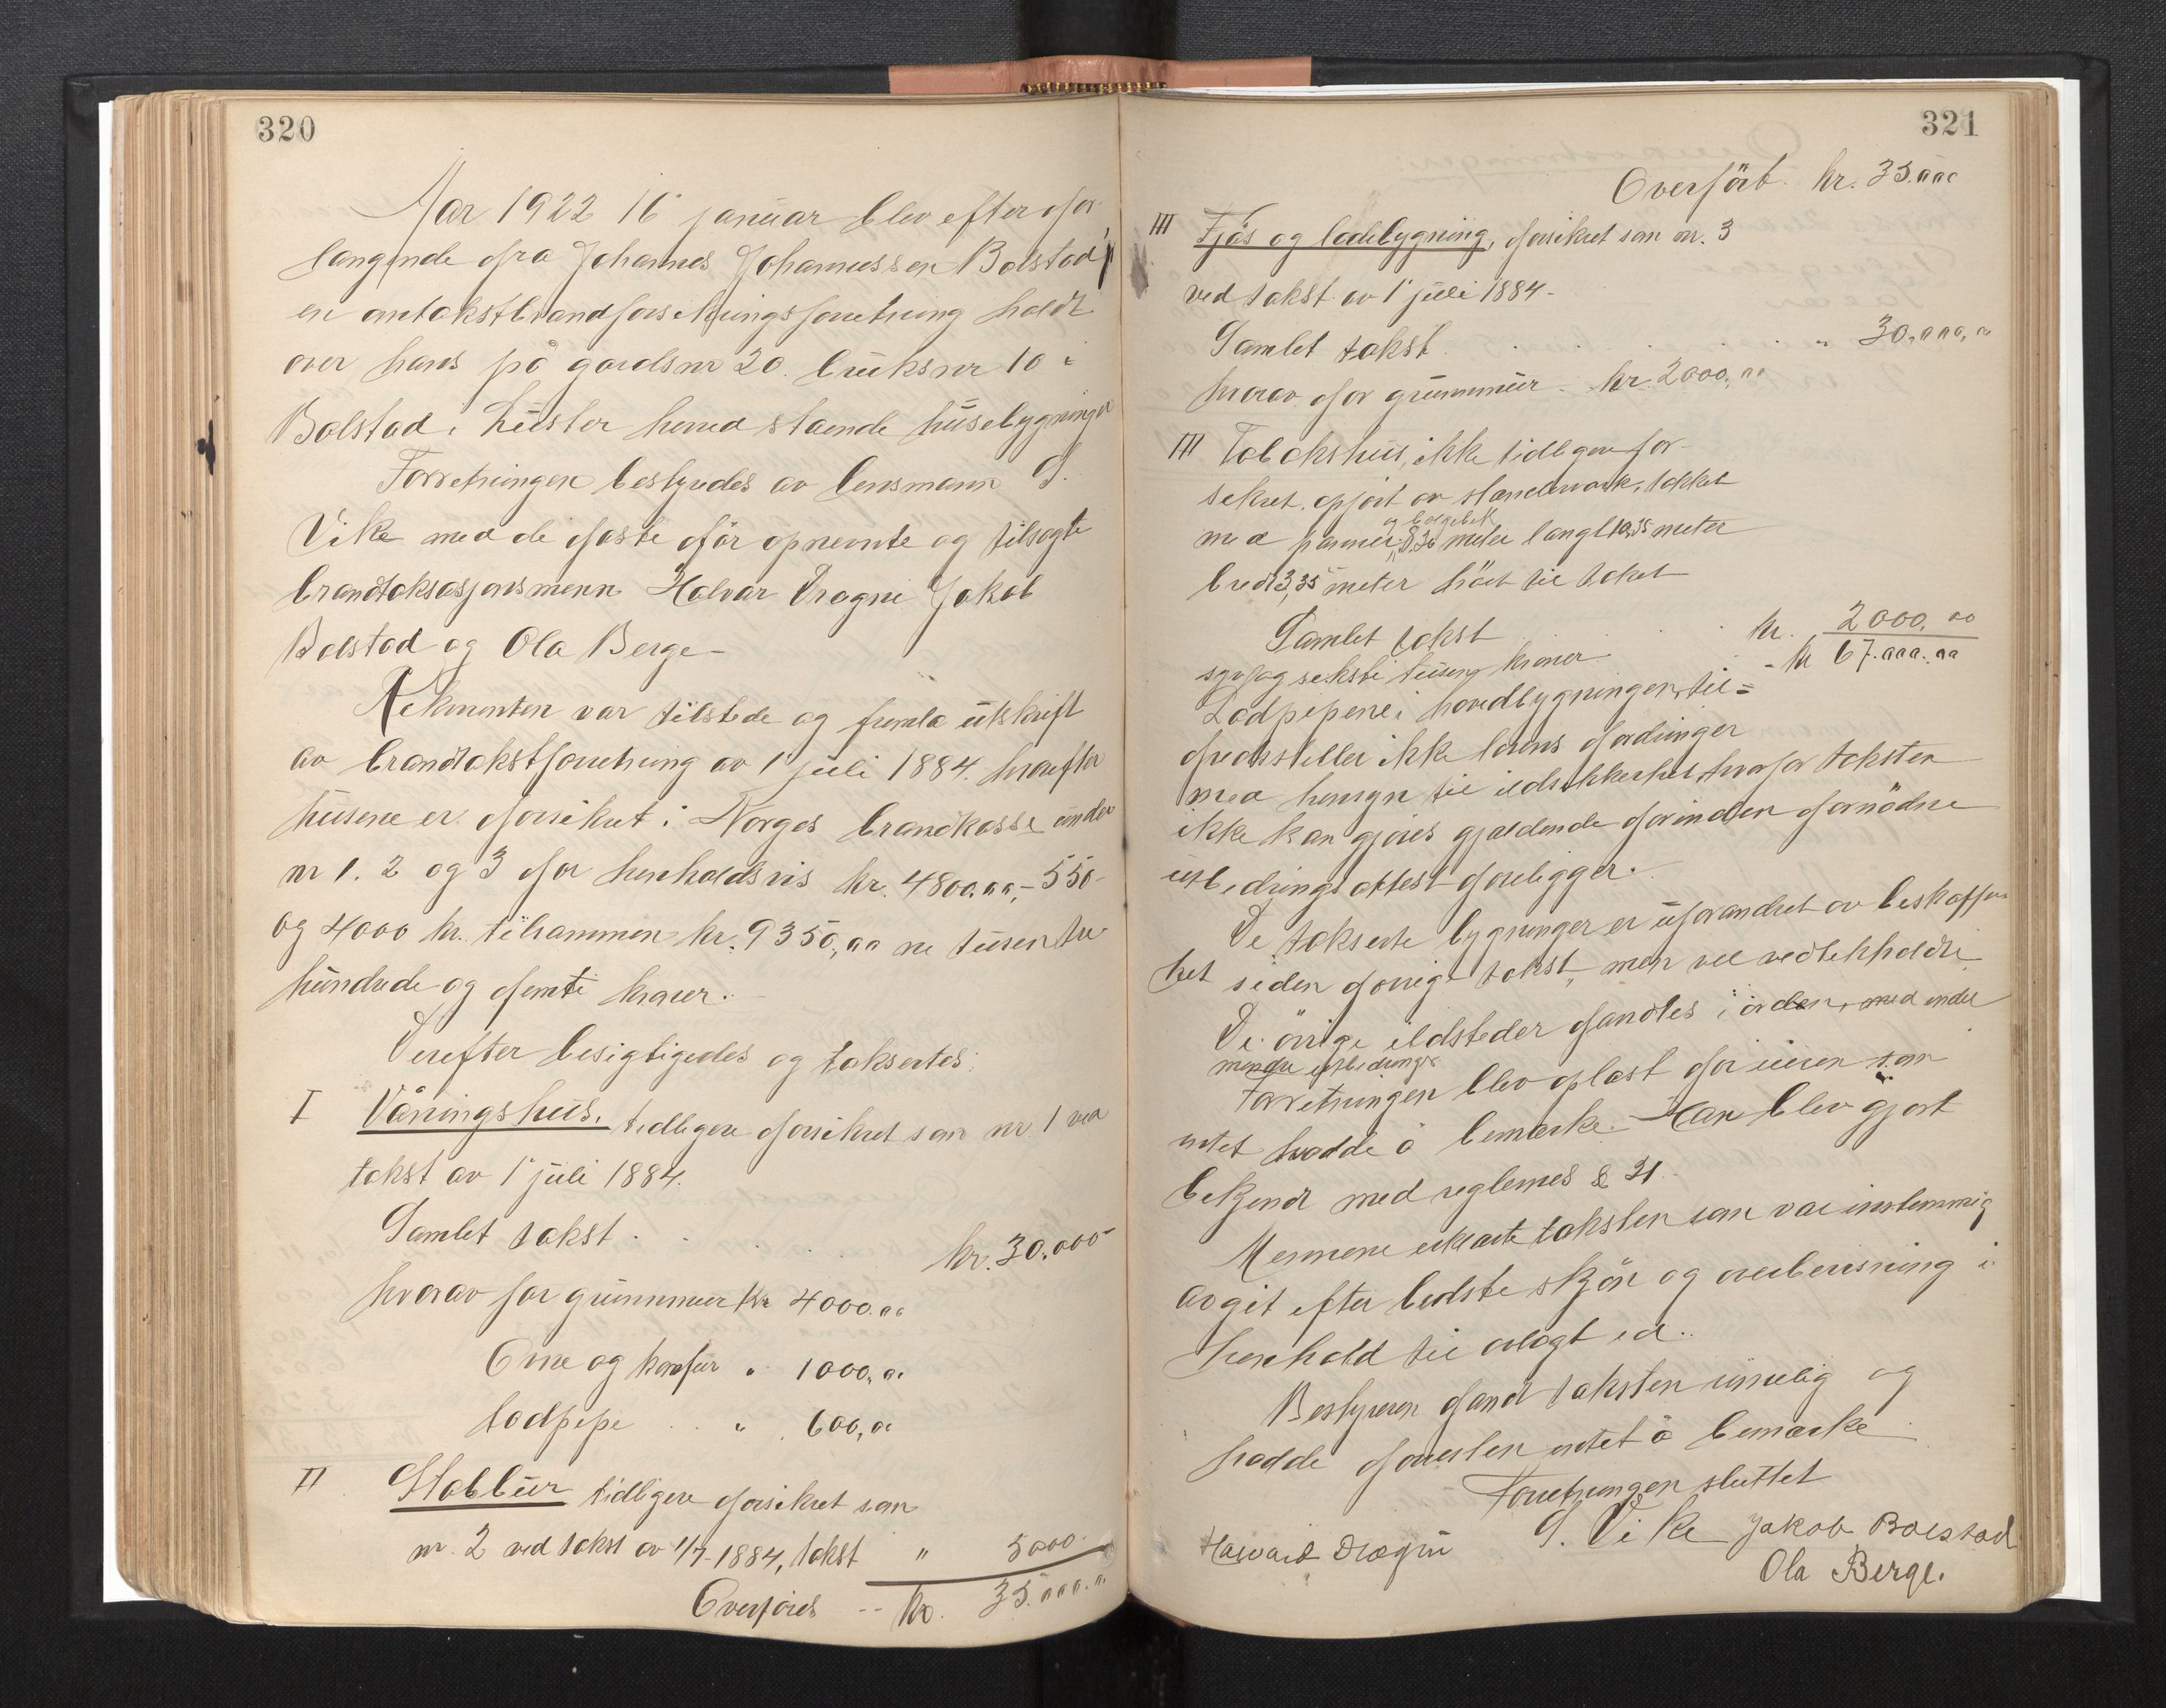 320
Aar 1922 16 januar blev efter for-
langende fra Johannes Johannessen Bolstad
en omtakstbrandforsikringsforretning holdt
over hans på gardsnr 20. bruksnr 10 i
Bolstad i Luster herred stående husebygninger
Forretningen bestyredes av lensmann S.
Vike med de faste før opnevnte og tilsagte
brandtaksasjonsmenn Halvar Drægni Jakob
Bolstad og Ola Berge -
Rekvirenten var tilstede og fremla utskrift
av brandtakstforretning av 1 juli 1884. hvorefter
husene er forsikret i Norges brandkasse under
nr 1. 2 og 3 for henholdsvis kr. 4800.00,- 550-
og 4000 kr. tilsammen kr. 9350,00 ni tusen tre
hundrede og femti kroner.
Derefter besigtigedes og taksertes:
I Våningshus. tidligere forsikret som nr 1 ved
takst av 1 juli 1884.
Samlet takst . . . . kr. 30.000-
hvorav for grunnmur kr 4000.00
Ovne og komfur " 1000,00
lodpipe . . " 600,00
II Stabbur tidligere forsikret som
nr. 2 ved takst av 1/7-1884, takst " 5000.
Overføres -- kr. 35.000.00
321
Overført. kr. 35.000
III Fjøs og ladebygning, forsikret som nr. 3
ved takst av 1 juli 1884-
Samlet takst . . . . . " 30.000,00
hvorav for grunnmur . kr. 2000,00
IIII ikke tidligere for-
sikret, opført av stavverk, tekket
og bølgeblik
med panner 8.30 meter langt 10,35 meter
bredt 3,35 meter høit til taket
Samlet takst . . . kr. 2000,00
syv og seksti tusen kroner - kr 67.000.00
Lodpipene i hovedbygningen, til=
fredsstiller ikke lovens fordringer
med hensyn til ildsikkerhet, hvorfor taksten
ikke kan gjøres gjældende forinden fornødne
utbedringsattest foreligger.
De takserte bygninger er uforandret av beskaffen
het siden forrige takst, men vel vedlikeholdt.
De øvrige ildsteder fandtes i orden, med undt
mindre utbedringer
Forretningen blev oplæst for eieren som
intet hadde å bemærke. Han blev gjort
bekjendt med reglernes § 21.
Mennene erklærte taksten som var enstemmig
avgit efter bedste skjøn og overbevisning i
henhold til avlagt ed.
Bestyreren fandt taksten rimelig og
hadde forøvrig intet å bemærke
Forretningen sluttet
S. Vike Jakob Bolstad
Halvard Drægni
Ola Berge.